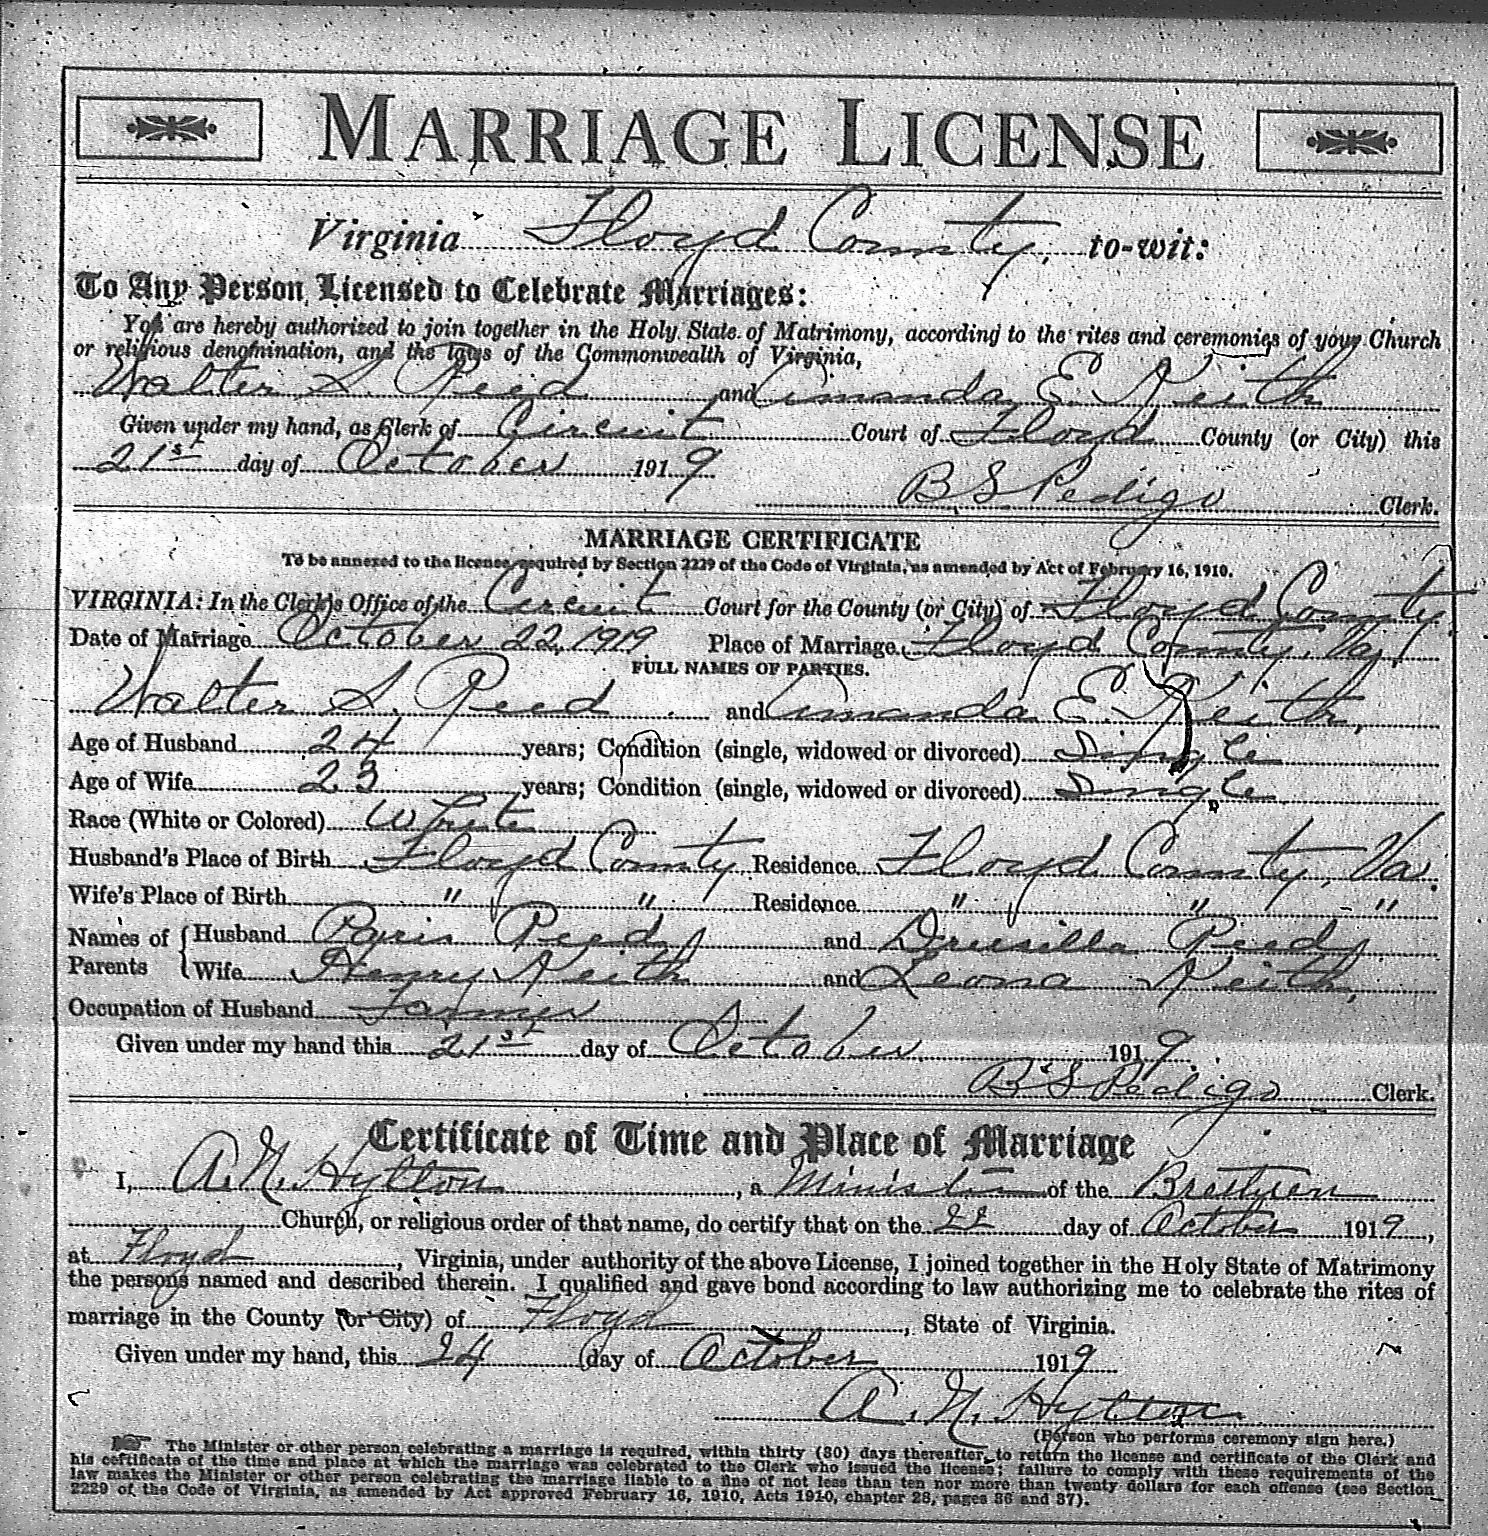 MARRIAGE LICENSE
Virginia Floyd County, to-wit:
To Any Person Licensed to Celebrate Marriages:
You are hereby authorized to join together in the Holy State of Matrimony, according to the rites and ceremonies of your Church
or religious denomination, and the laws of the Commonwealth of Virginia,
Walter S. Reed and Amanda E. Keith
Given under my hand, as Clerk of Circuit Court of Floyd County (or City) this
21st day of October 1919
B S Pedigo Clerk.
MARRIAGE CERTIFICATE
To be annexed to the license, required by Section 2229 of the Code of Virginia, as amended by Act of February 16, 1910.
VIRGINIA: In the Clerk's Office of the Circuit Court for the County (or City) of Floyd County
Date of Marriage October 22, 1919 Place of Marriage Floyd County, Va,
FULL NAMES OF PARTIES.
Walter S. Reed and Amanda E. Keith,
Age of Husband 24 years; Condition (single, widowed or divorced) Single
Age of Wife 23 years; Condition (single, widowed or divorced) Single
Race (White or Colored) White
Husband's Place of Birth Floyd County Residence Floyd County, Va.
Wife's Place of Birth " " Residence " " "
Names of Parents { Husband Paris Reed, and Drusilla Reed,
Wife Henry Keith and Leona Keith,
Occupation of Husband Farmer
Given under my hand this 21st day of October 1919.
B S Pedigo Clerk.
Certificate of Time and Place of Marriage
I, A. N. Hylton, a Minister of the Brethren
Church, or religious order of that name, do certify that on the 22 day of October 1919,
at Floyd, Virginia, under authority of the above License, I joined together in the Holy State of Matrimony
the persons named and described therein. I qualified and gave bond according to law authorizing me to celebrate the rites of
marriage in the County (or City) of Floyd, State of Virginia.
Given under my hand, this 24 day of October 1919
A. N. Hylton
(Person who performs ceremony sign here.)
The Minister or other person celebrating a marriage is required, within thirty (30) days thereafter, to return the license and certificate of the Clerk and
his certificate of the time and place at which the marriage was celebrated to the Clerk who issued the license; failure to comply with these requirements of the
law makes the Minister or other person celebrating the marriage liable to a fine of not less than ten nor more than twenty dollars for each offense (see Section
2229 of the Code of Virginia, as amended by Act approved February 16, 1910, Acts 1910, chapter 28, pages 36 and 37).